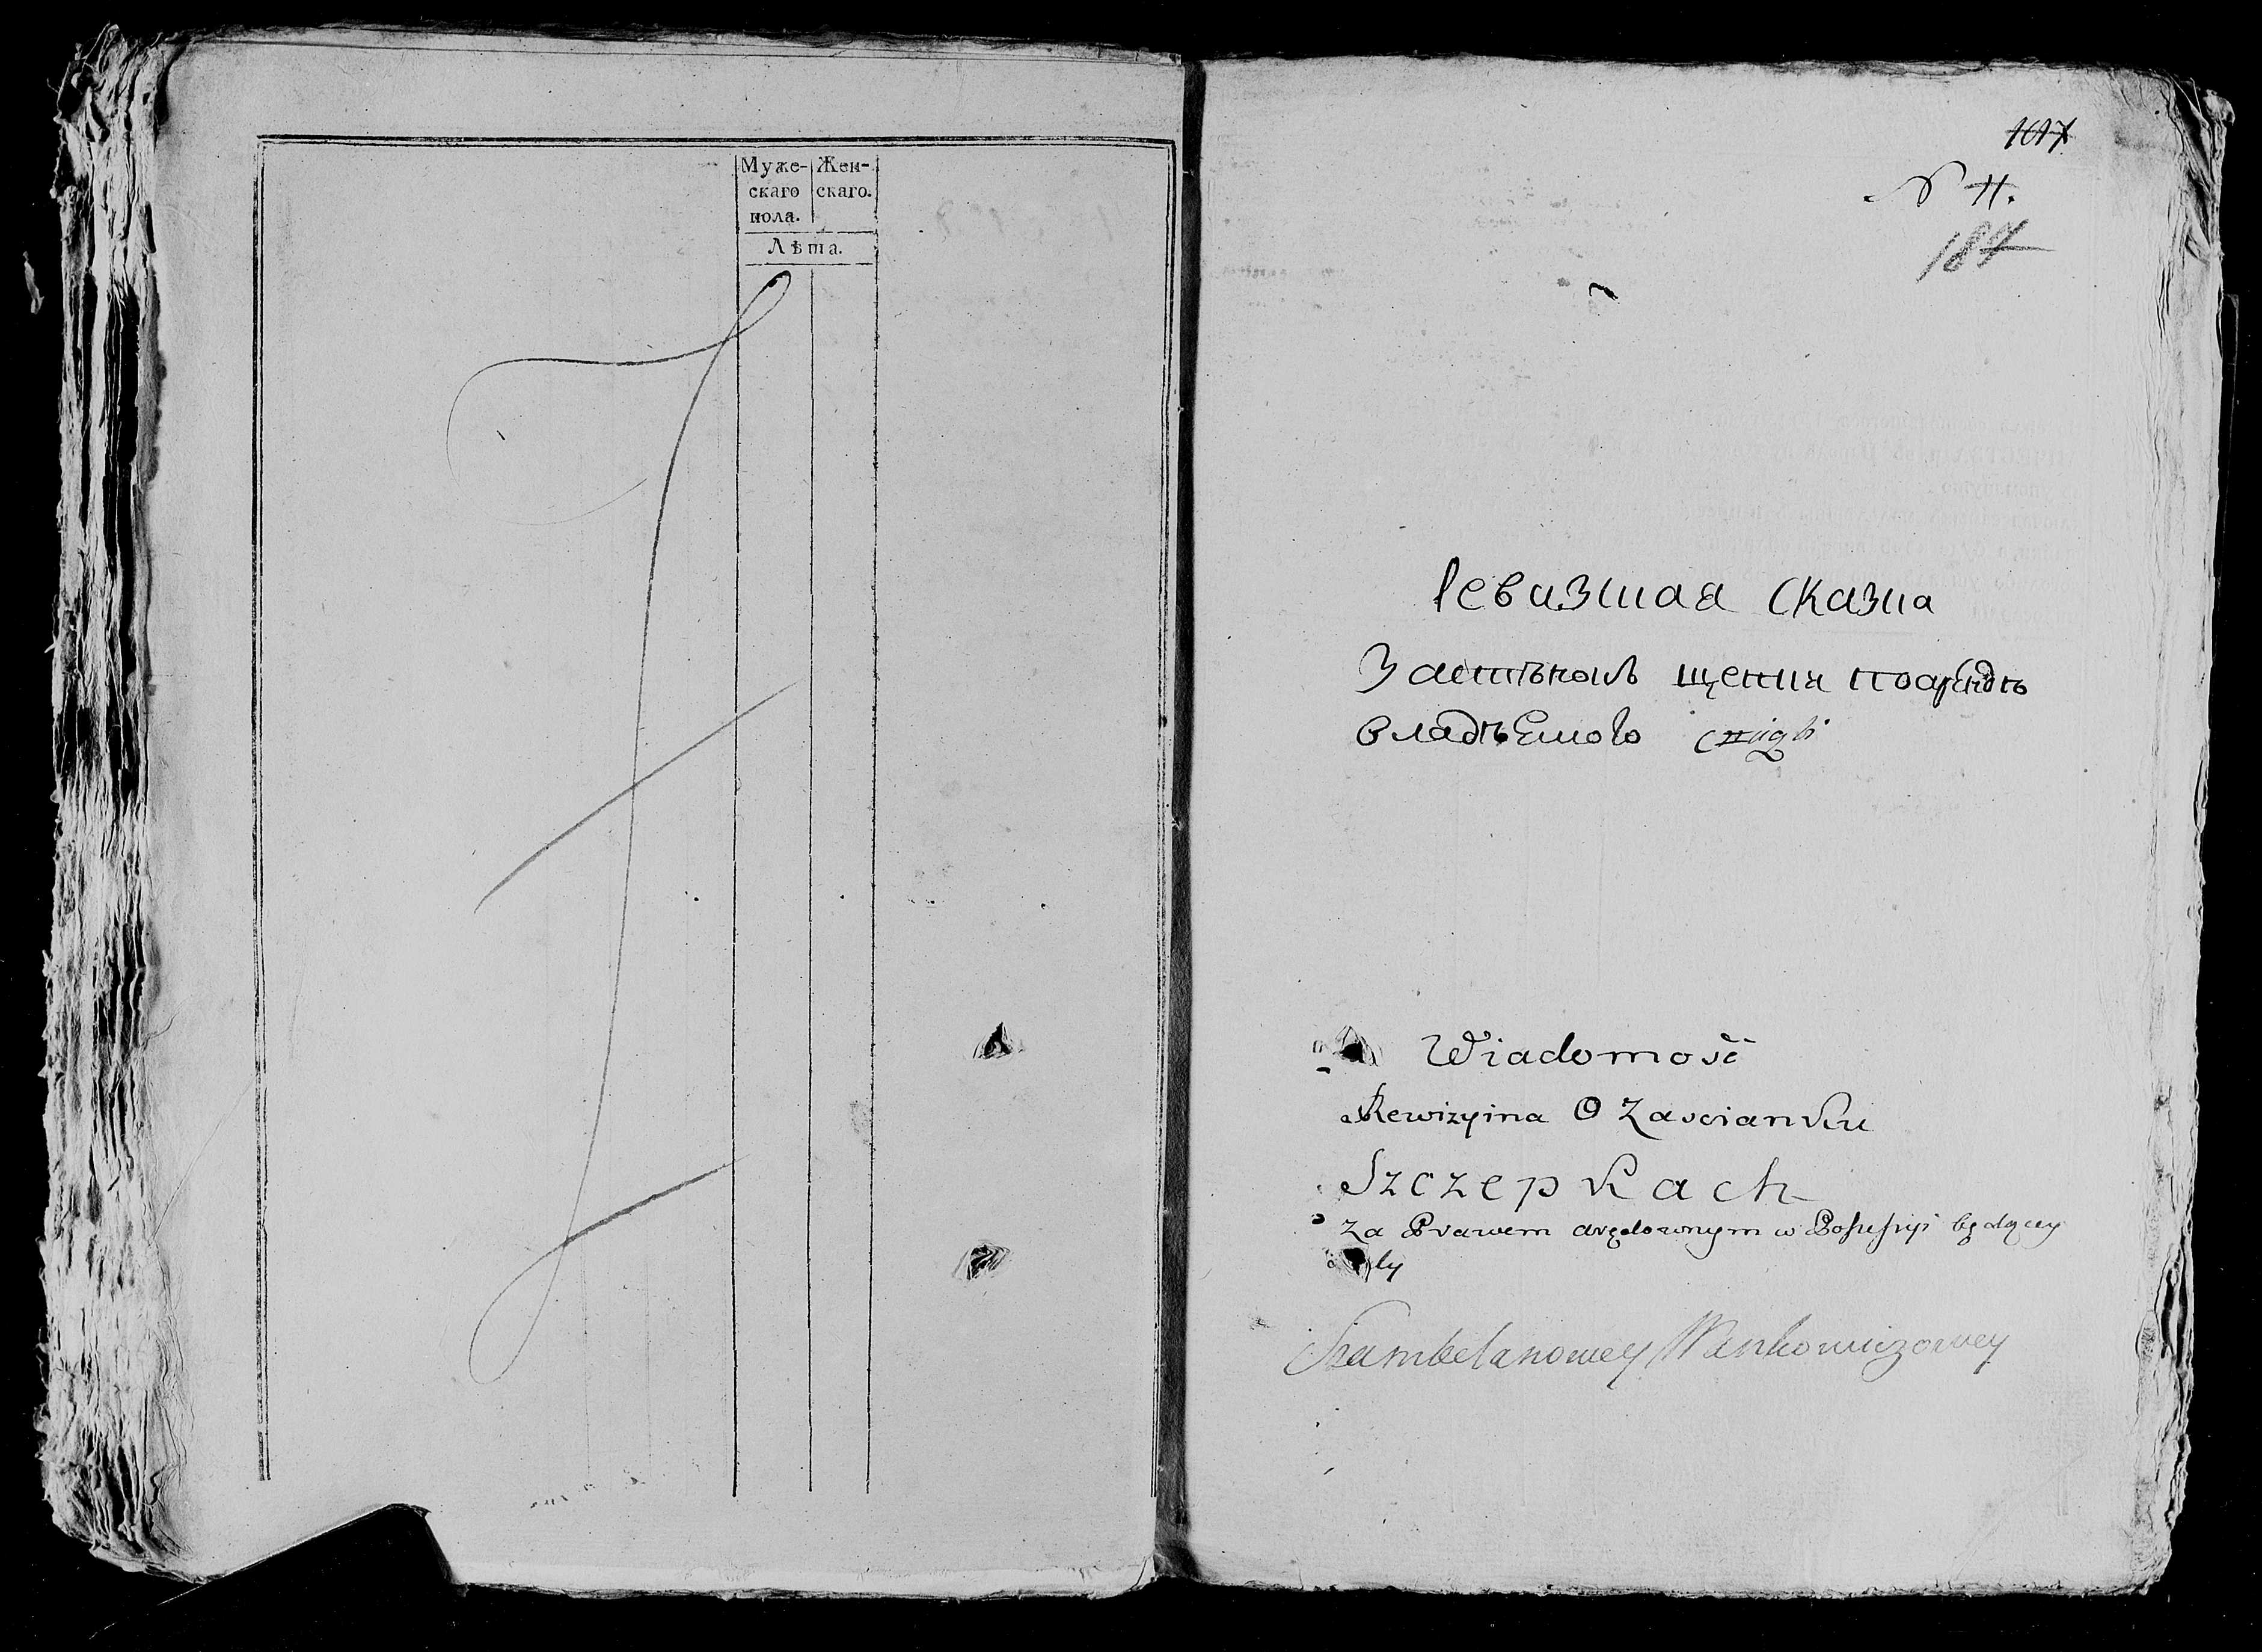 Муже-
скаго
пола.
Жен-
скаго.
Лѣта.
1017
N 11.
187
Ревизшая сказка
Застѣнокъ щепки поарендѣ
владѣемого
Wiadomość
Rewizyina O Zascianku
Szczepkach
Za Prawem arędownym w Possessyi będącey
Szambelanowey Wankowiczowey